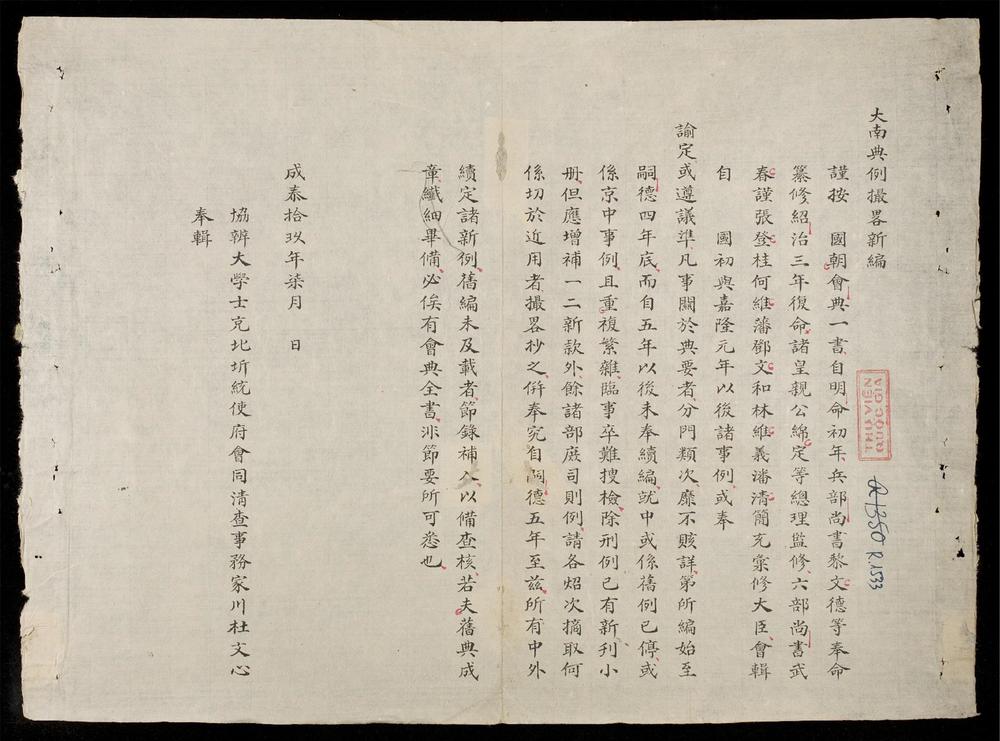 大南典例撮畧新編
謹按　國朝會典一書自明命初年兵部尚書黎文德等奉命
纂修紹治三年復命諸皇親公綿定等總理監修六部尚書武
春謹張登桂何維藩鄧文和林維義潘清簡充彙修大臣會輯
自　國初與嘉隆元年以後諸事例或奉
諭定或遵議準凡事關於典要者分門類次靡不賅詳第所編始至
嗣德四年底而自五年以後未奉續編就中或係舊例已停或
係京中事例且重複繁雜臨事卒難搜檢除刑例已有新刊小
册但應增補一二新款外餘諸部庭司則例請各炤次摘取何
係切於近用者撮畧抄之併奉究自嗣德五年至兹所有中外
續定諸新例舊編未及載者節錄補入以備查核若夫舊典成
章纖細畢備必俟有會典全書非節要所可悉也
成泰拾玖年柒月　日
協辨大學士充北圻統使府會同清查事務家川杜文心
奉輯
THƯ VIỆN
QUỐC GIA
R.1533